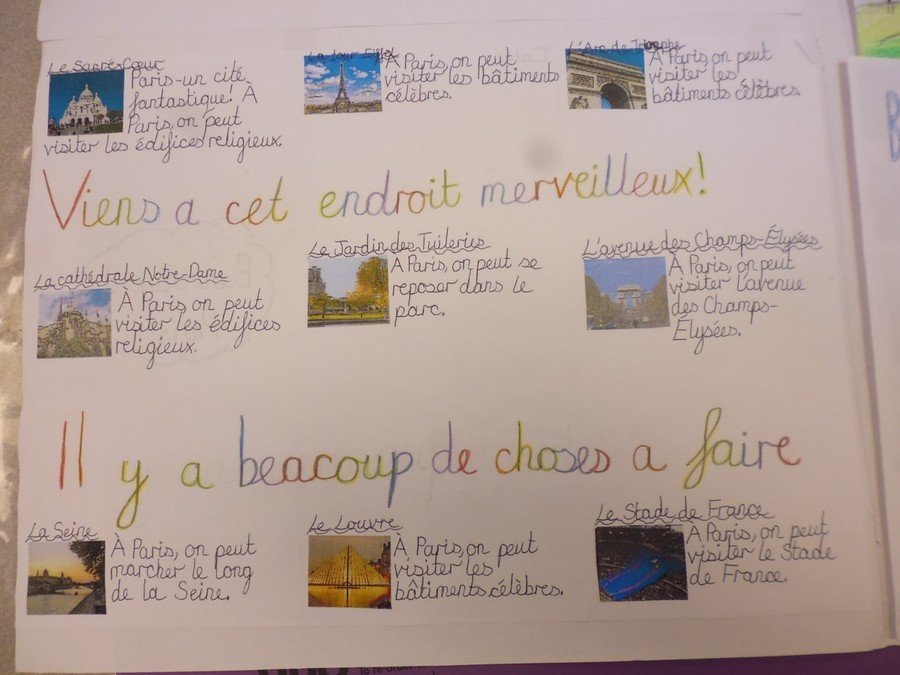 Le Sacré Cœur
Paris-un cité
fantastique! À
Paris, on peut
visiter les édifices religieux.
La Tour Eiffel
À Paris, on peut
visiter les bâtiments
célèbres.
L'Arc de Triomphe
À Paris, on peut
visiter les
bâtiments célèbres.
Viens a cet endroit merveilleux!
La cathédrale Notre-Dame
À Paris on peut
visiter les édifices
religieux.
Le Jardin des Tuileries
A Paris, on peut se
reposer dans le
parc.
L'avenue des Champs-Élysées
À Paris, on peut
visiter l'avenue
des Champs-
Élysées.
Il y a beacoup de choses a faire
La Seine
À Paris, on peut
marcher le long
de la Seine.
Le Louvre
À Paris, on peut
visiter les
bâtiments célèbres.
Le Stade de France
À Paris, on peut
visiter le Stade
de France